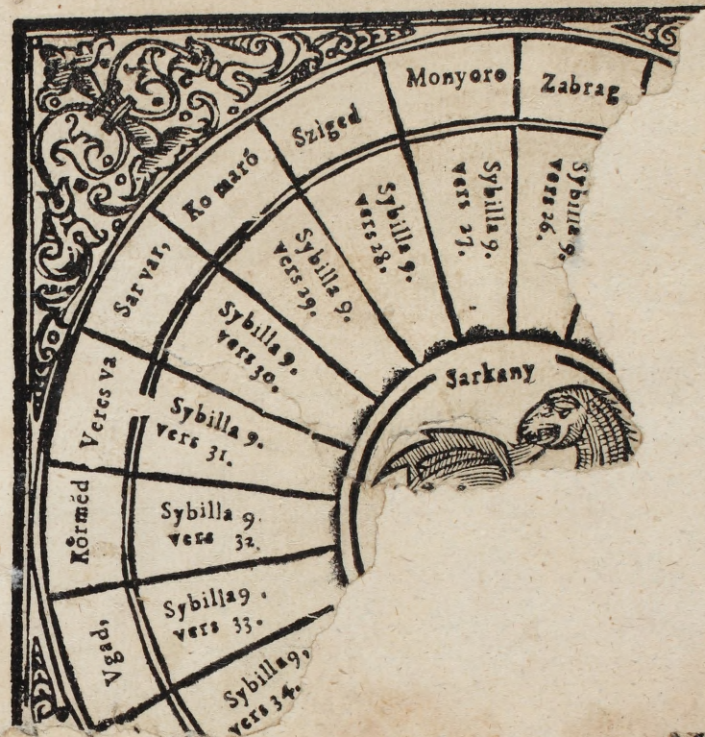 Monyoro
Zabrag
Sziged
Ko maró
Sar var,
Veres va
Kőrméd
Vgad,
Sybilla 9.
vers 26.
Sybilla 9.
vers 27.
Sybilla 9.
vers 28.
Sybilla 9.
vers 29.
Sybilla 9.
vers 30.
Sybilla 9.
vers 31.
Sybilla 9
vers 32.
Sybilla 9.
vers 33.
Sybilla 9,
vers 34.
Sarkany